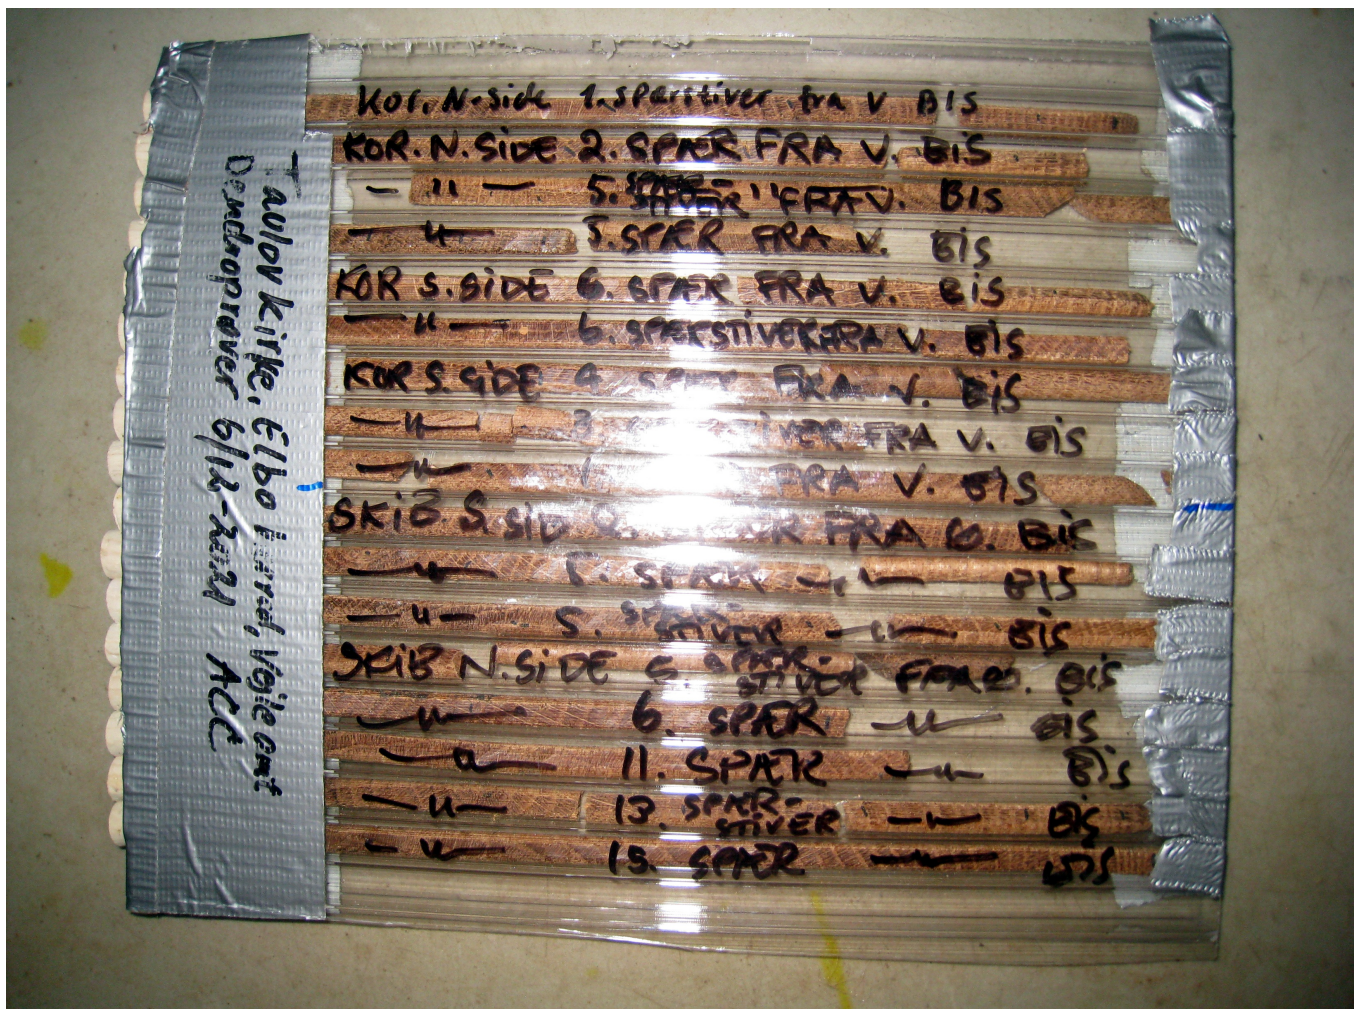 Taulov kirke, Elbo herred, Vejle amt
Dendroprøver 6/12-2004 ACC
Kor. N-side 1. spærstiver fra v BIS
KOR. N. SIDE 2. SPÆR FRA V. BIS
— " — 5. SPÆR-STIVER " FRA V. BIS
— " — 5. SPÆR FRA V. BIS
KOR S. SIDE 6. SPÆR FRA V. BIS
— " — 6. SPÆRSTIVER FRA V. BIS
KOR S. SIDE 4 SPÆR FRA V. BIS
— " — 3 FRA V. BIS
— " — FRA V. BIS
SKIB. S. SID FRA Ø. BIS
— " — SPÆR — " — BIS
— " — 5. SPÆR-STIVER — " — BIS
SKIB N. SIDE SPÆR-STIVER FRA Ø. BIS
— " — 6. SPÆR — " — BIS
— " — 11. SPÆR — " — BIS
— " — 13. SPÆR-STIVER — " — BIS
— " — 15. SPÆR — " — BIS